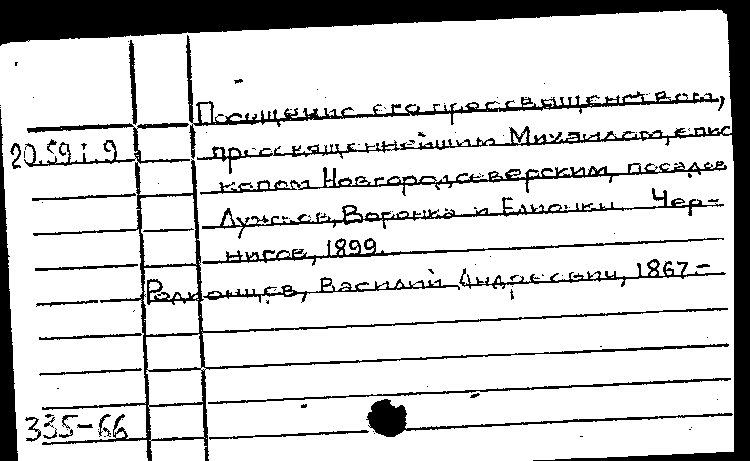 Посещение его преосвященством,
20.59 i.9 преосвященнейшим Михаилом, епис
копом Новгородсеверским, посадов
Лужков, Воронка и Елионки. Чер-
нигов, 1899.
Родионцев, Василий Андреевич, 1867-
335-66